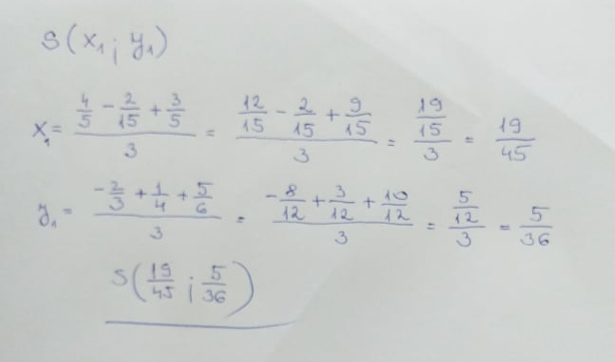 S(x₁; y₁)
x₁ = (4/5 - 2/15 + 3/5)/3 = (12/15 - 2/15 + 9/15)/3 = (19/15)/3 = 19/45
y₁ = (-2/3 + 1/4 + 5/6)/3 = (-8/12 + 3/12 + 10/12)/3 = (5/12)/3 = 5/36
S(19/45; 5/36)